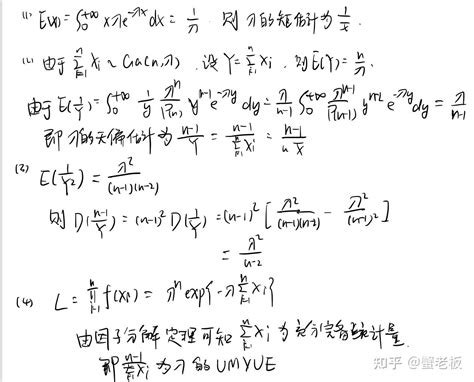 (1) E(X)=∫₀^{+∞} xλe^{-λx}dx = 1/λ. 则λ的矩估计为 1/x̄.
(2) 由于 ∑_{i=1}^{n} Xi ~ Ga(n,λ). 设 Y=∑_{i=1}^{n} Xi, 则E(Y)=n/λ.
由于E(1/Y)=∫₀^{+∞} 1/y λⁿ/Γ(n) y^{n-1}e^{-λy}dy = λ/(n-1) ∫₀^{+∞} λ^{n-1}/Γ(n-1) y^{n-2}e^{-λy}dy = λ/(n-1)
即λ的无偏估计为 (n-1)/Y = (n-1)/∑_{i=1}^{n}Xi = (n-1)/(n x̄)
(3) E(1/Y²) = λ²/((n-1)(n-2))
则 D((n-1)/Y) = (n-1)² D(1/Y) = (n-1)² [λ²/((n-1)(n-2)) - λ²/(n-1)²]
= λ²/(n-2)
(4) L = ∏_{i=1}^{n} f(xi) = λⁿ exp{-λ∑_{i=1}^{n}Xi}
由因子分解定理可知 ∑_{i=1}^{n} Xi 为充分完备统计量.
即 (n-1)/∑_{i=1}^{n}Xi 为λ的UMVUE
知乎 @蟹老板